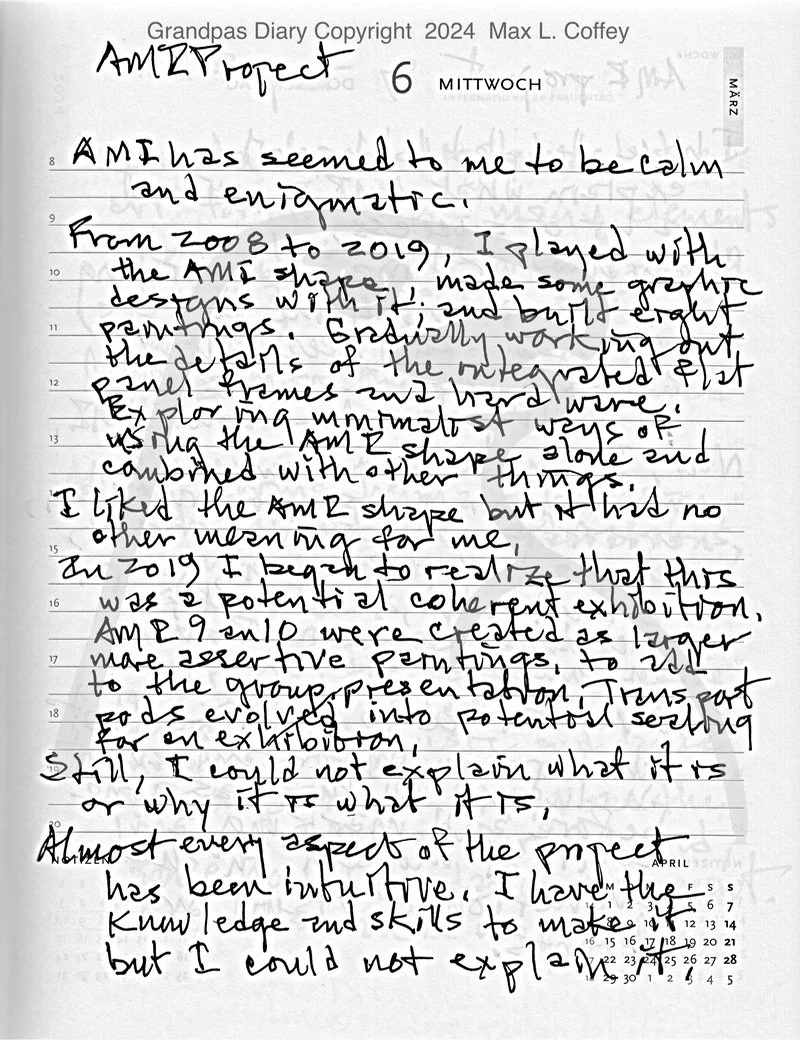 Grandpas Diary Copyright 2024 Max L. Coffey
AMI Project
6 MITTWOCH
MÄRZ
8 AMI has seemed to me to be calm
and enigmatic.
9
From 2008 to 2019, I played with
10 the AMI shape, made some graphic
designs with it; and built eight
11 paintings. Gradually working out
the details of the integrated flat
12 panel frames and hardware.
Exploring minimalist ways of
13 using the AMI shape alone and
combined with other things.
I liked the AMI shape but it had no
other meaning for me.
15
In 2019 I began to realize that this
16 was a potential coherent exhibition.
AMI 9 an10 were created as larger
17 more assertive paintings, to add
to the group presentation. Transport
18 pods evolved into potential seating
for an exhibition.
Still, I could not explain what it is
or why it is what it is.
20
Almost every aspect of the project
NOTIZEN APRIL
has been intuitive. I have the
M F S S
1 2 3 4 5 6 7
knowledge and skills to make it
8 9 10 11 12 13 14
16 15 16 17 18 19 20 21
but I could not explain it.
17 22 23 24 25 26 27 28
29 30 1 2 3 4 5